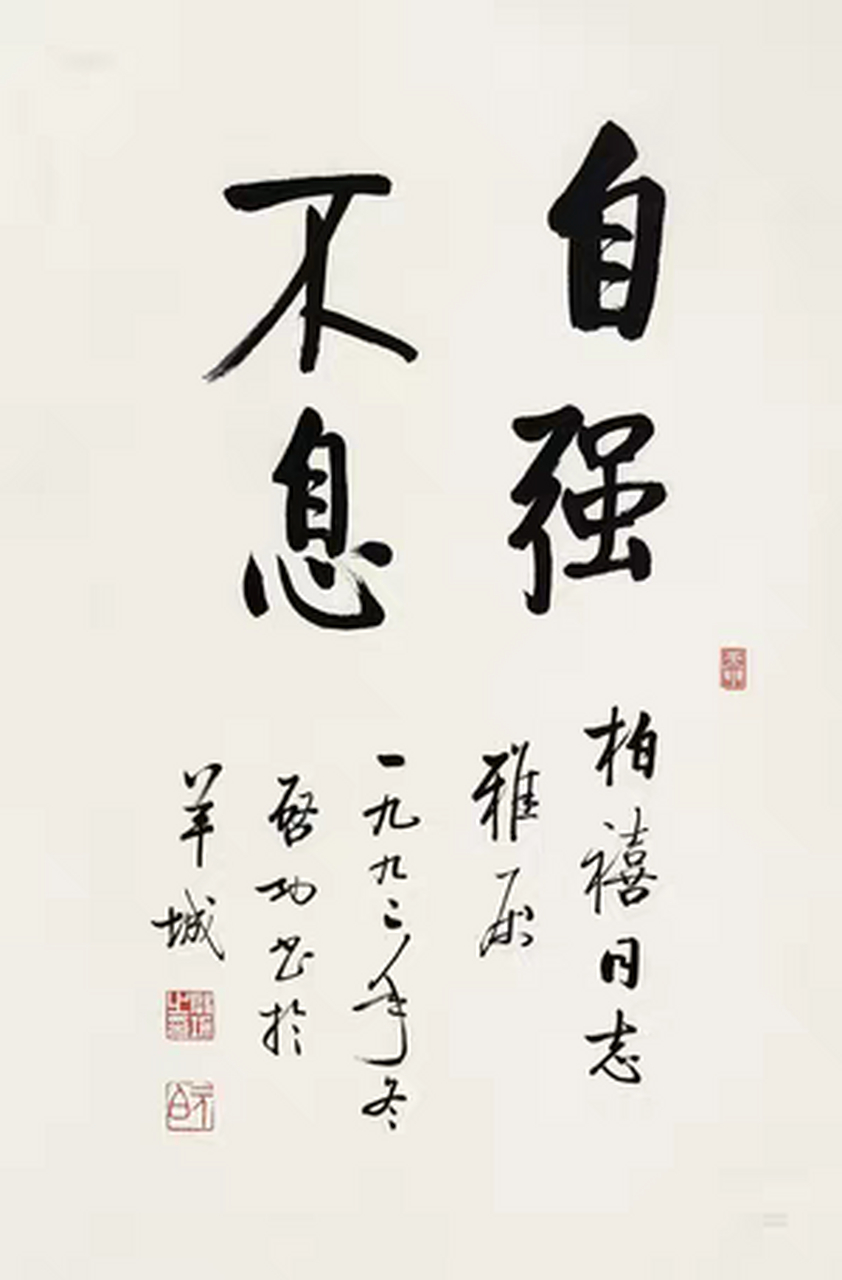 自强
不息
柏禧同志
雅属
一九九二年冬
启功书于
羊城
元白